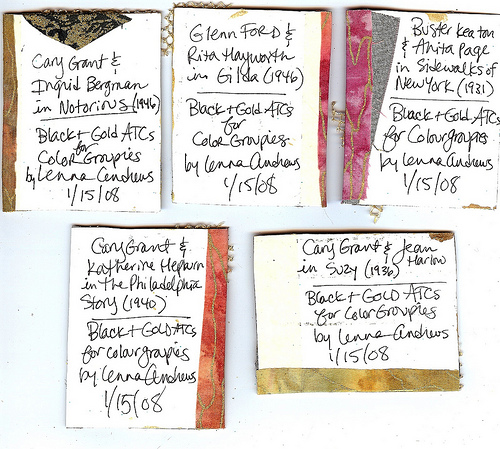 Cary Grant &
Ingrid Bergman
in Notorious (1946)
Black + Gold ATCs
for
Color Groupies
by Lenna Andrews
1/15/08
Glenn Ford &
Rita Hayworth
in Gilda (1946)
Black + Gold ATCs
for
Color Groupies
by Lenna Andrews
1/15/08
Buster Keaton
& Anita Page
in Sidewalks of
New York (1931)
Black + Gold ATCs
for Colourgroupies
by Lenna Andrews
1/15/08
Cary Grant &
Katherine Hepburn
in the Philadelphia
Story (1940)
Black + Gold ATCs
for colourgroupies
by Lenna Andrews
1/15/08
Cary Grant & Jean
Harlow
in Suzy (1936)
Black + Gold ATCs
for Color Groupies
by Lenna Andrews
1/15/08